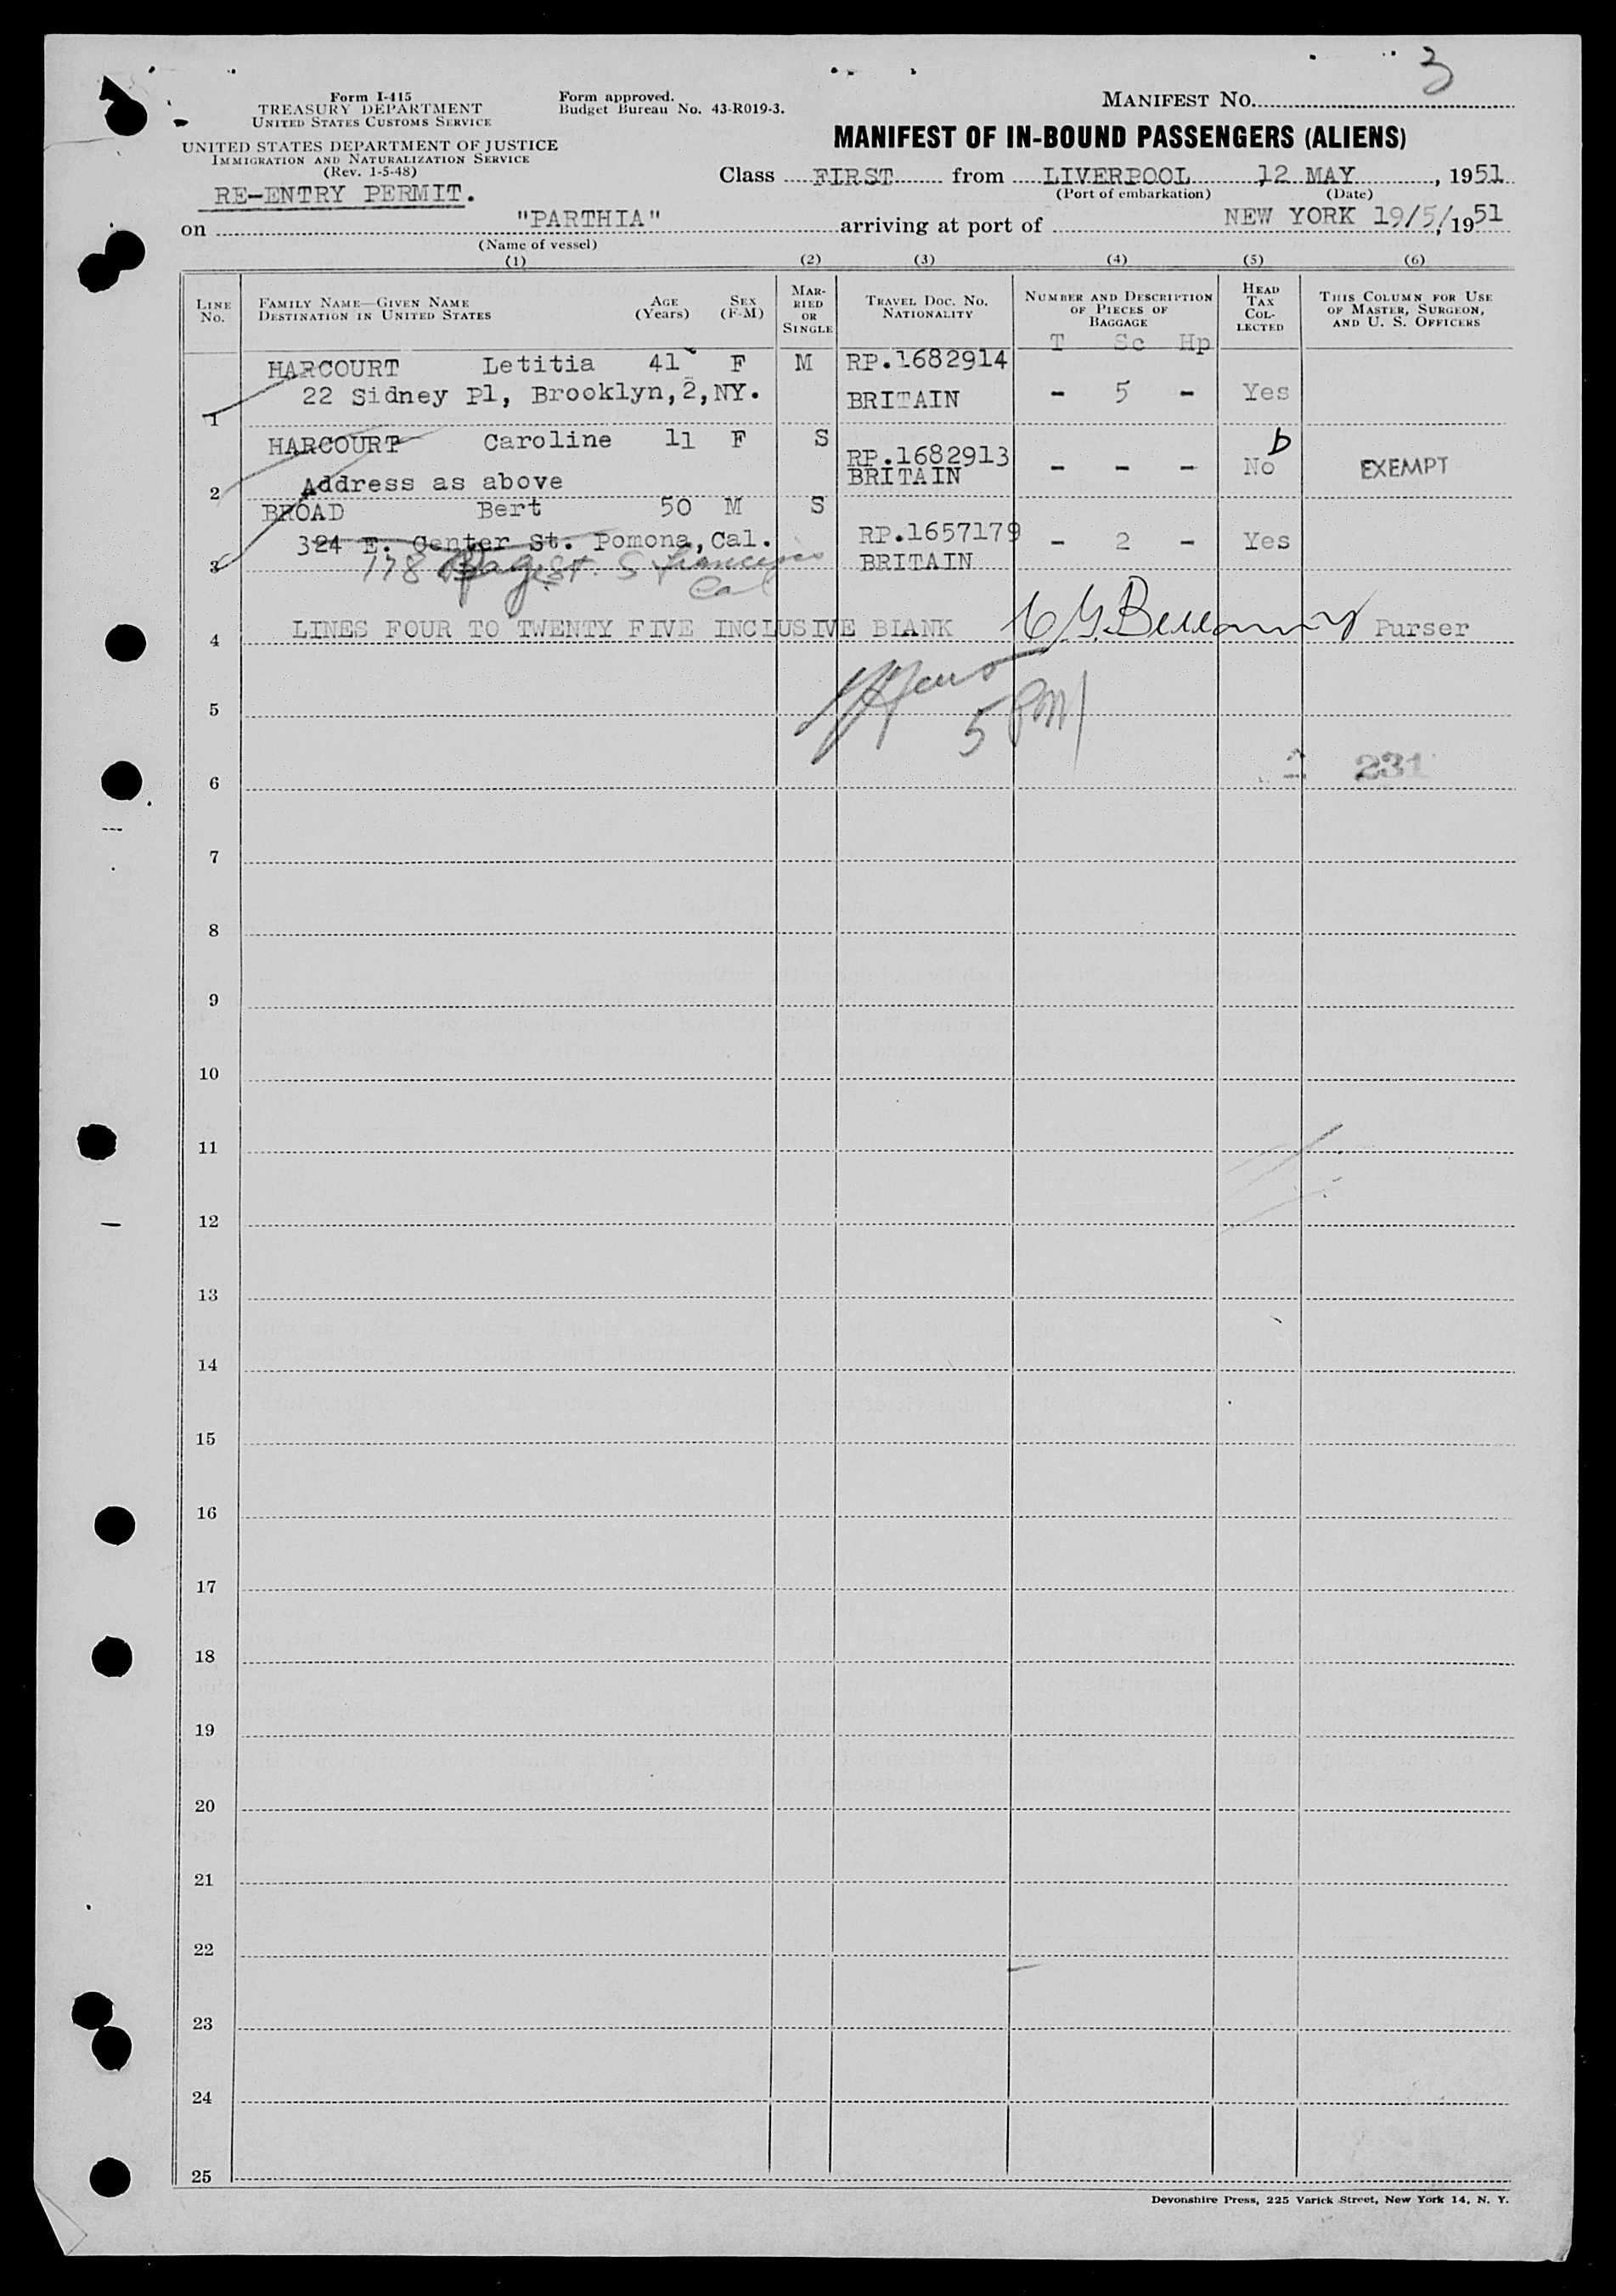 3
Form I-415
TREASURY DEPARTMENT
UNITED STATES CUSTOMS SERVICE
UNITED STATES DEPARTMENT OF JUSTICE
IMMIGRATION AND NATURALIZATION SERVICE
(Rev. 1-5-48)
RE-ENTRY PERMIT.
Form approved.
Budget Bureau No. 43-R019-3.
MANIFEST NO.
MANIFEST OF IN-BOUND PASSENGERS (ALIENS)
Class FIRST from LIVERPOOL, 12 MAY, 1951
(Port of embarkation) (Date)
on "PARTHIA" arriving at port of NEW YORK 19/5/, 1951
(Name of vessel)
(1) (2) (3) (4) (5) (6)
LINE NO.
FAMILY NAME—GIVEN NAME
DESTINATION IN UNITED STATES
AGE (Years)
SEX (F-M)
MARRIED OR SINGLE
TRAVEL DOC. NO. NATIONALITY
NUMBER AND DESCRIPTION OF PIECES OF BAGGAGE
HEAD TAX COLLECTED
THIS COLUMN FOR USE OF MASTER, SURGEON, AND U. S. OFFICERS
T Sc Hp
HARCOURT Letitia 41 F M RP.1682914
22 Sidney Pl, Brooklyn,2,NY. BRITAIN - 5 - Yes
1
HARCOURT Caroline 11 F S RP.1682913 b
Address as above BRITAIN - - - No EXEMPT
2
BROAD Bert 50 M S RP.1657179
324 E. Center St. Pomona, Cal. BRITAIN - 2 - Yes
3
178 Page St. S Francisco
Cal
LINES FOUR TO TWENTY FIVE INCLUSIVE BLANK Purser
4
5 PM
5
231
6
7
8
9
10
11
12
13
14
15
16
17
18
19
20
21
22
23
24
25
Devonshire Press, 225 Varick Street, New York 14, N. Y.